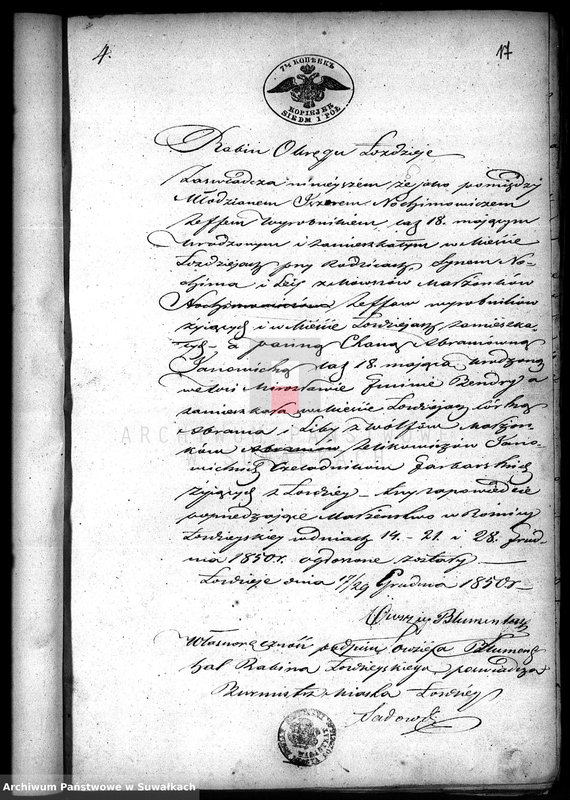 4.
17
7½ КОПѢЕКЪ
KOPIEJEK
SIEDM I PÓŁ
Rabin Okręgu Łozdzieje
Zaswiadcza ninieyszem że jako pomiędzy
Młodzianem Nochimowiczem
wyrobnikiem, lat 18. mającym
urodzonym i zamieszkałym w Mieście
Łozdziejach przy Rodzicach, Synem No-
chima i Małżonków
wyrobników
żyjących i w Mieście Łozdziejach zamieszka-
łych – a panną Chaną Abramówną
Janowichą lat 18. mającą, urodzoną
we wsi Mirosławie Gminie a
zamieszkałą w Mieście Łozdziejach córką
Abrama i Liby z Wolfów małżon-
ków Jano-
wichich Czeladników Garbarskich
żyjących z Łozdziey – trzy zapowiedzie
poprzedzające Małżeństwo w Bożnicy
Łozdzieyskiey w dniach 14. – 21. i 28. Grud-
nia 1850 r. ogłoszone zostały. —
Łozdzieje dnia 17/29 Grudnia 1850 r –
Blumenthal
Własnoręczność podpisu Blument-
hal Rabina Łozdzieyskiego, poświadcza
Burmistrz Miasta Łozdziey
Sadowski
ARCHIWUM PAŃSTWOWE
Archiwum Państwowe w Suwałkach